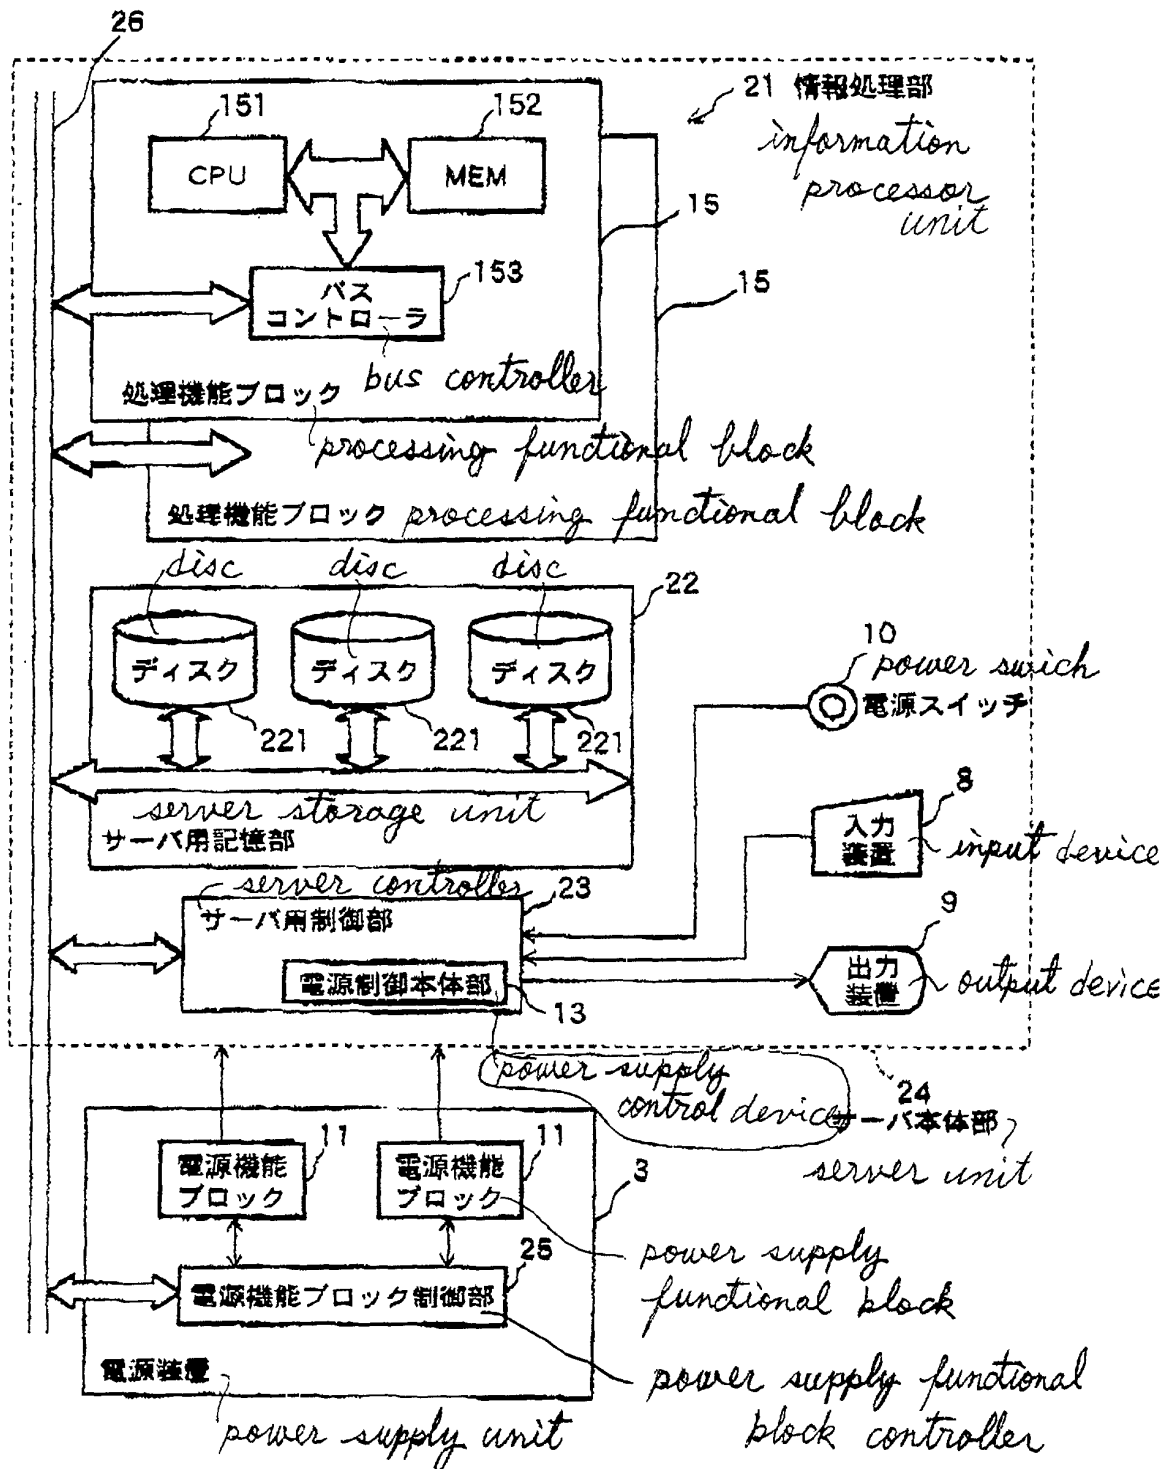 26
21 情報処理部
information
processor
unit
151
152
CPU
MEM
15
15
153
バス
コントローラ
bus controller
処理機能ブロック
processing functional block
処理機能ブロック
processing functional block
disc
disc
disc
22
ディスク
ディスク
ディスク
221
221
221
server storage unit
サーバ用記憶部
10
power swich
電源スイッチ
8
入力
装置
input device
server controller
23
サーバ用制御部
電源制御本体部
13
9
出力
装置
output device
power supply
control device
24
サーバ本体部
server unit
11
電源機能
ブロック
11
電源機能
ブロック
3
power supply
functional block
25
電源機能ブロック制御部
電源装置
power supply unit
power supply functional
block controller